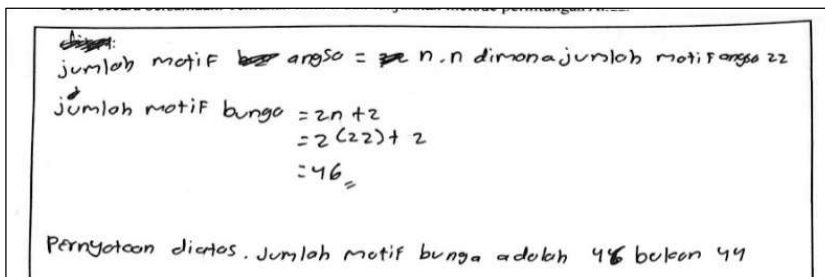 jumlah motif angsa = n. n dimana jumlah motif angsa 22
jumlah motif bunga = 2n + 2
= 2 (22) + 2
= 46
Pernyataan diatas. Jumlah motif bunga adalah 46 bukan 44